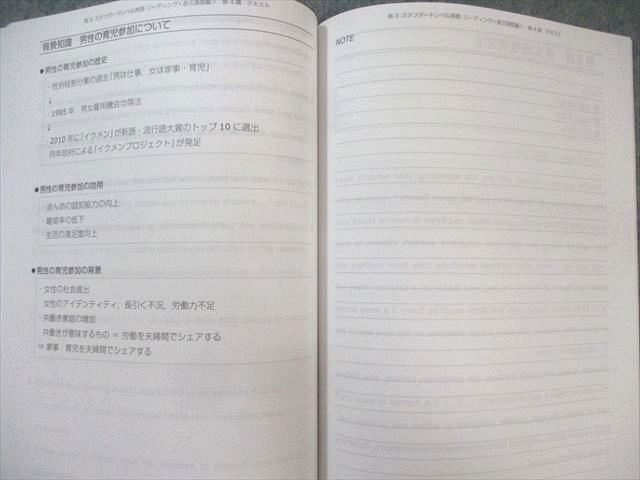 高3 スタンダードレベル英語 リーディング<長文演習編> 第4講 テキスト
背景知識 男性の育児参加について
●男性の育児参加の歴史
・性別役割分業の過去「男は仕事，女は家事・育児」
↓
・1985年 男女雇用機会均等法
↓
・2010年に「イクメン」が新語・流行語大賞のトップ10に選出
同年政府による「イクメンプロジェクト」が発足
●男性の育児参加の効用
・赤ん坊の認知能力の向上
・離婚率の低下
・生活の満足度向上
●男性の育児参加の背景
・女性の社会進出
女性のアイデンティティ，長引く不況，労働力不足
・共働き家庭の増加
共働きが意味するもの ＝ 労働を夫婦間でシェアする
⇒ 家事・育児を夫婦間でシェアする
高3 スタンダードレベル英語 リーディング<長文演習編> 第4講 テキスト
NOTE